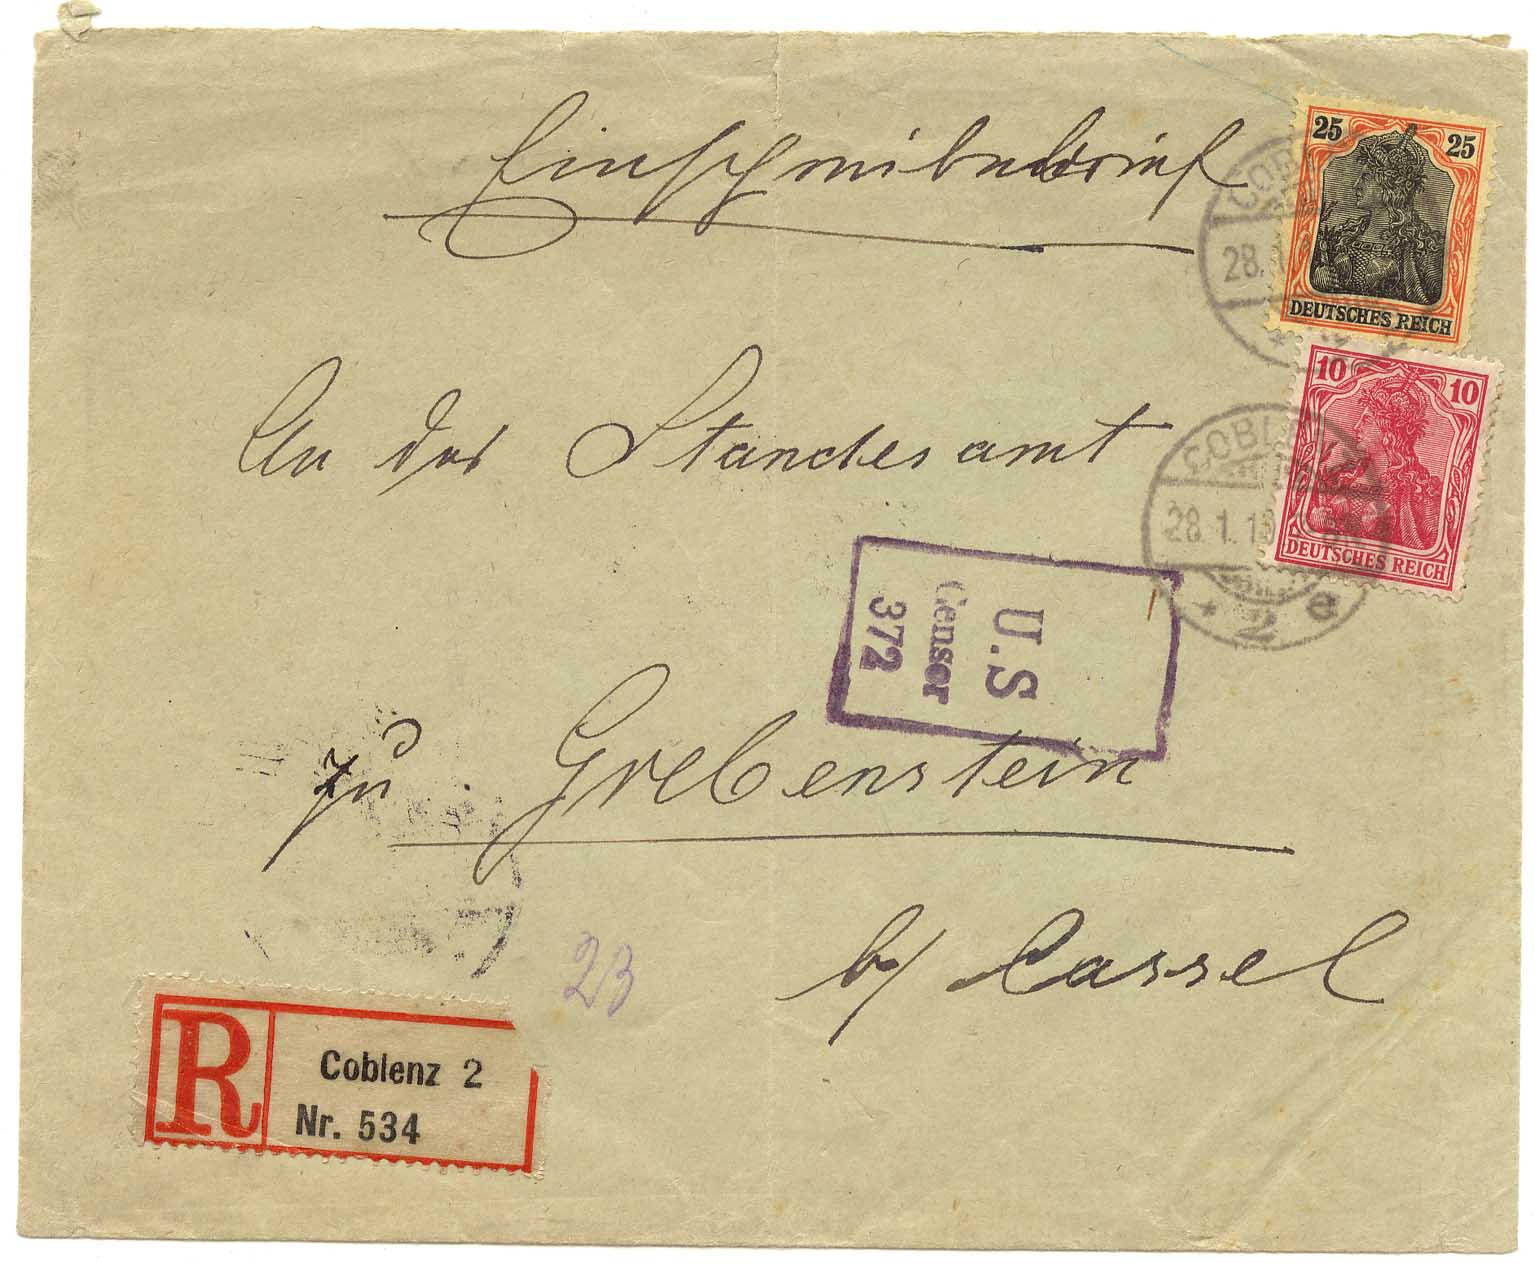 Einschreibebrief
25 25
DEUTSCHES REICH
COBL
28.1.
10 10
DEUTSCHES REICH
COBL
28.1.19
* 2 e
An das Standesamt
U.S
Censor
372
zu Grebenstein
b/ Cassel
23
R
Coblenz 2
Nr. 534